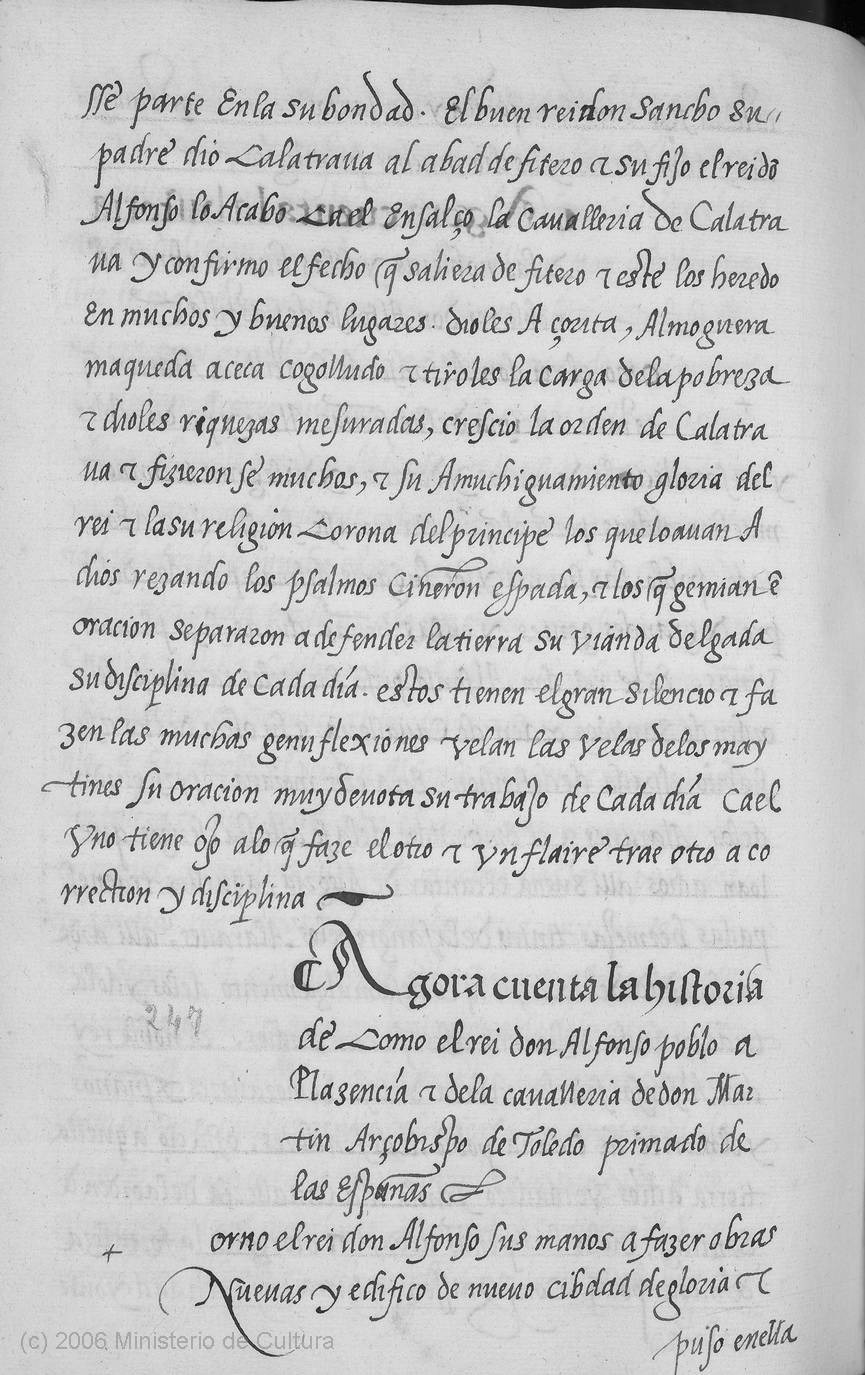 sse parte en la su bondad. El buen rei don Sancho su
padre dio Calatraua al abad de fitero τ su fijo el rei dõ
Alfonso lo Acabo Ca el ensalço la cavalleria de Calatra
ua y confirmo el fecho q̃ saliera de fitero τ este los heredo
en muchos y buenos lugares. dioles Açorita, Almoguera
maqueda aceca cogolludo τ tiroles la carga de la pobreza
τ dioles riquezas mesuradas, crescio la orden de Calatra
ua τ fizieron se muchos, τ su Amuchiguamiento gloria del
rei τ la su religion Corona del principe los que loauan A
dios rezando los psalmos Cineron espada, τ los q̃ gemian ẽ
oracion se pararon a defender la tierra su vianda delgada
su disciplina de Cada dia. estos tienen el gran silencio τ fa
zen las muchas genuflexiones velan las velas de los may
tines su oracion muy devota su trabajo de Cada dia Ca el
Vno tiene ojo a lo q̃ faze el otro τ vn flaire trae otro a co
rrection y disciplina
Agora cuenta la historia
de Como el rei don Alfonso poblo a
Plazencia τ de la cavalleria de don Mar
tin Arçobispo de Toledo primado de
las Españas
247
+ orno el rei don Alfonso sus manos a fazer obras
Nuevas y edifico de nuevo cibdad de gloria τ
puso en ella
(c) 2006 Ministerio de Cultura